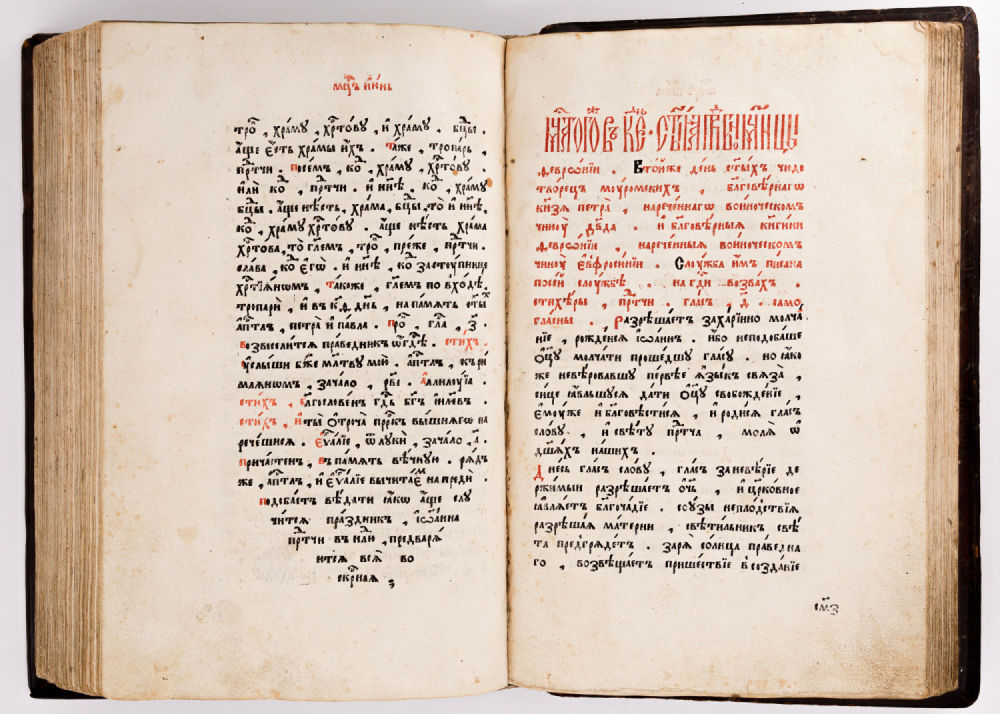 мцⷭ҇ъ ію́нь
тро̑ , хра́мꙋ , хрⷭ҇то́вꙋ , и҆ хра́мꙋ , бцⷣы .
а҆́ще є҆́сть храмы и҆́хъ . Та́же , тропа́рь ,
прⷣтчи . Посе́мъ , ко̑ , хра́мꙋ , хрⷭ҇то́вꙋ .
и҆лѝ ко̑ , прⷣтчи . и҆ нн҃ѣ , ко̑ , хра́мꙋ
бцⷣы . а҆́ще нѣ́сть , хра́ма , бцⷣы , то̀ и҆ нн҃ѣ ,
ко̑ , хра́мꙋ хрⷭ҇то́вꙋ . а҆́ще нѣ́сть хра́ма
хрⷭ҇то́ва , то̀ гл҃емъ , тро̑ , пре́же , прⷣтчи .
сла́ва , ко̑ є҆гѡ̀ . и҆ нн҃ѣ , ко̑ застꙋ́пнице
хрⷭ҇тїѧ́нѡмъ , та́коже , гл҃емъ по вхо́дѣ ,
тропарѝ , и҆ въ к҃д , дн҃ь , на па́мѧть ст҃ы́х
а҆пⷭ҇тлъ , петра̀ и҆ па́вла . Про̑ , гла̑ , з҃ .
Возвесели́тсѧ пра́ведникъ ѡ҆ гдⷭ҇ѣ . Сти́хъ .
Оу҆слы́ши бж҃е мл҃твꙋ мою̀ . а҆пⷭ҇тлъ , къ ри́
млѧнѡмъ , зача́ло , рв҃і . Аллилꙋ́їа .
сти́хъ , бл҃гослове́нъ гдⷭ҇ь бг҃ъ і҆и҃левъ .
сти́хъ , И҆ ты̀ ѻ҆троча̀ прⷪ҇ркъ вы́шнѧгѡ на
рече́шисѧ . Є҆ѵⷢ҇а́лїе , ѿ лꙋкѝ , зача́ло , а҃ .
Прича́стенъ , въ па́мѧть вѣ́чнꙋю . рѧ́дъ
же , а҆пⷭ҇тлъ , и҆ є҆ѵⷢ҇а́лїе вычита́ем напредѝ .
Подоба́етъ вѣ́дати ꙗ҆́кѡ а҆́ще слꙋ
чи́тсѧ пра́здникъ , і҆ѡа́нна
прⷣтчи въ нⷣлю , предварѧ́
итсѧ всѧ̀ во
скрⷭ҇наѧ ,
Мцⷭ҇а того́жъ въ к҃е . ст҃ы́ѧ прпⷣбномч҃нцы
ѳеврѡ́нїи . В то́йже де́нь ст҃ы́хъ чюдо
тво́рецъ мꙋ́ромскихъ , бл҃говѣ́рнагѡ
кн҃зѧ петра̀ , нарече́ннагѡ во и҆́ноческомъ
чи́нꙋ дв҃да . и҆ бл҃говѣ́рныѧ кн҃ги́ни
ѳеврѡ́нїи , нарече́нныѧ во и҆́ноческомъ
чи́нꙋ є҆ѵфросѵ́нїи . Слꙋ́жба и҆̀мъ пи́сана
по се́й слꙋ́жбѣ . на гдⷭ҇и возва́хъ .
стихе́ры , прⷣтчи . гла́съ , д҃ . само
гла́сны . Разрѣша́етъ заха́рїино молча́
нїе , рожде́йсѧ і҆ѡа́ннъ . и҆́бо не подоба́ше
ѻ҆ц҃ꙋ̀ молча́ти проше́дшꙋ гла́сꙋ . но ꙗ҆́ко
же невѣ́ровавшꙋ пе́рвѣе ꙗ҆зы́къ свѧза̀ ,
си́це ꙗ҆́вльшꙋсѧ да́ти ѻ҆ц҃ꙋ̀ свобожде́нїе ,
є҆мꙋ́же и҆ бл҃говѣсти́сѧ , и҆ роди́сѧ гла́съ
сло́вꙋ , и҆ свѣ́тꙋ прⷣтча , молѧ̀ ѡ҆
дш҃а́хъ на́шихъ .
Дне́сь гла́съ сло́вꙋ , гла́съ за невѣ́рїе де
ржи́мыи разрѣша́етъ ѻ҆́ч҃ь , и҆ цр҃ко́вное
ꙗ҆влѧ́етъ бл҃гоча́дїе . сою́зы непло́дствїѧ
разрѣша́ѧ ма́терни , свѣти́льникъ свѣ́
та пред̾грѧде́тъ . зарѧ̀ со́лнца пра́ведна
го , возвѣща́етъ прише́ствїе в созда́нїе
см҃з